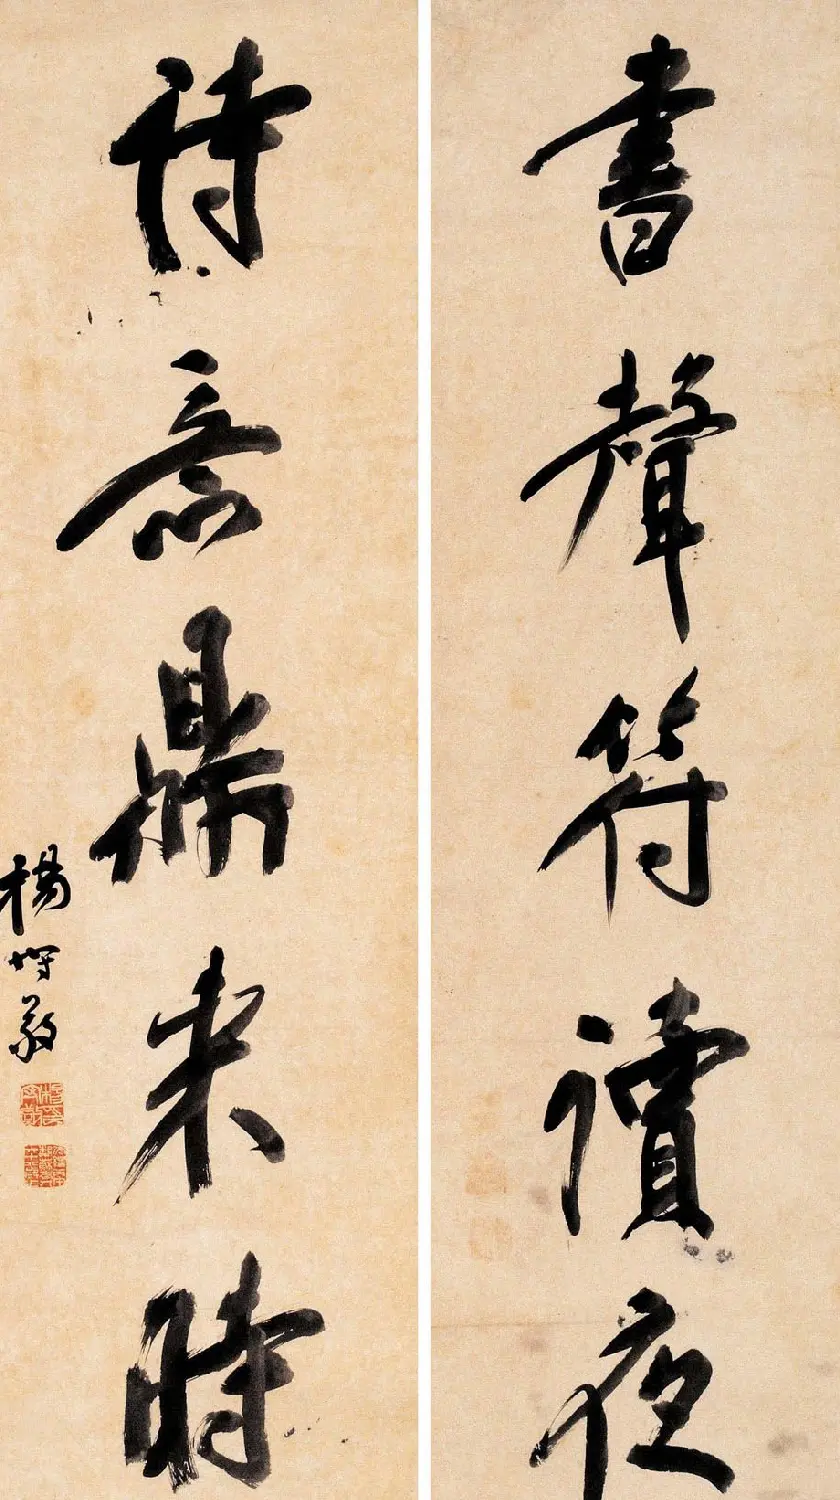 書聲符讀夜
詩意鼎來時
楊守敬